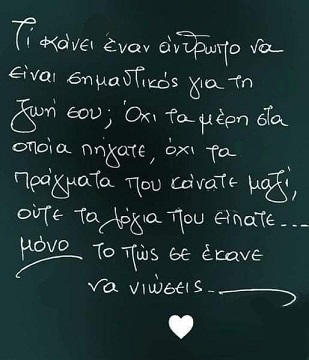 Τί κάνει έναν άνθρωπο να
είναι σημαντικός για τη
ζωή σου; Όχι τα μέρη στα
οποία πήγατε, όχι τα
πράγματα που κάνατε μαζί,
ούτε τα λόγια που είπατε...
μόνο το πώς σε έκανε
να νιώσεις..